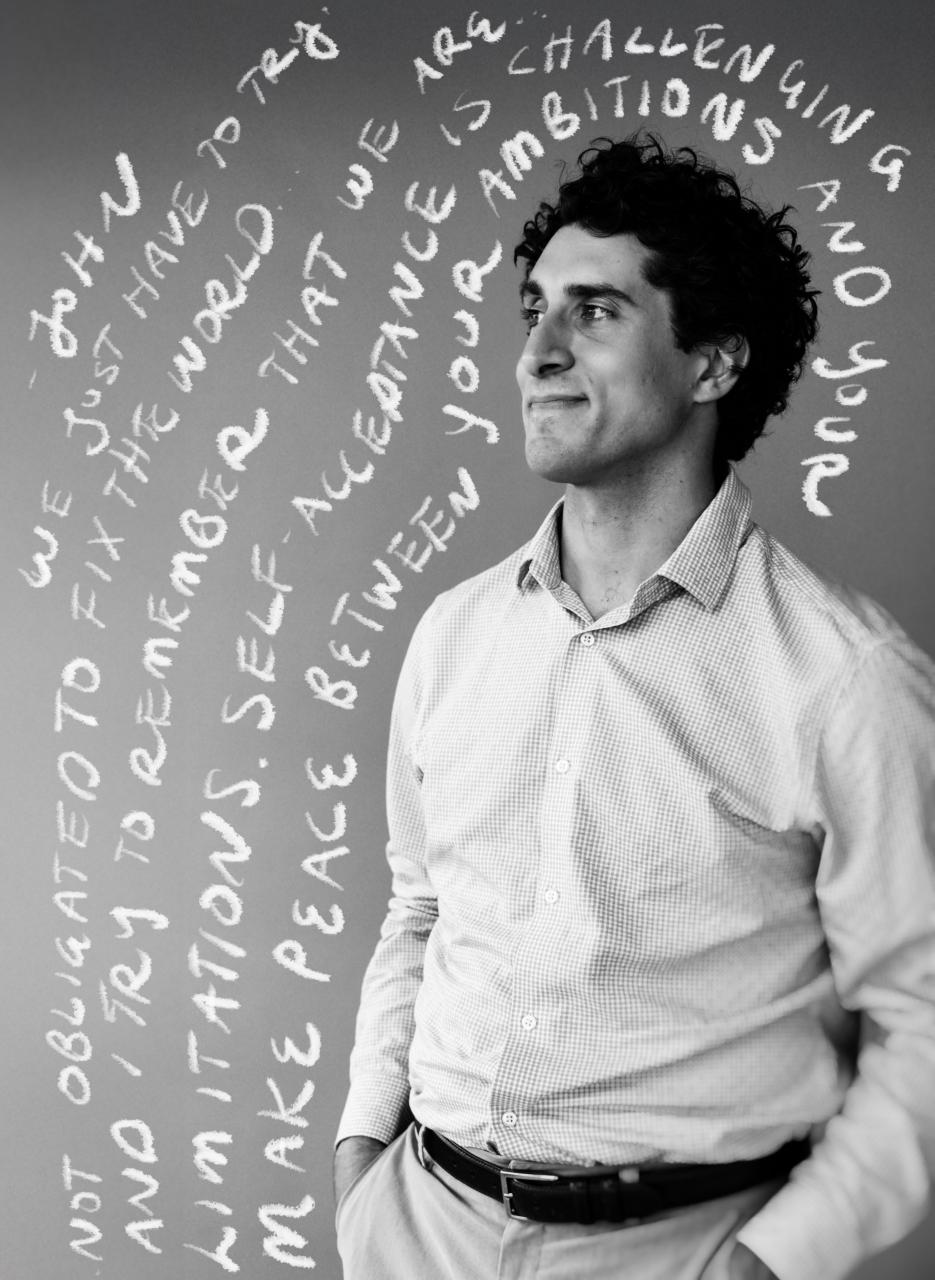 MAKE PEACE BETWEEN YOUR AMBITIONS AND YOUR
LIMITATIONS. SELF-ACCEPTANCE IS CHALLENGING
AND I TRY TO REMEMBER THAT WE ARE
NOT OBLIGATED TO FIX THE WORLD.
WE JUST HAVE TO TRY.
- JOHN